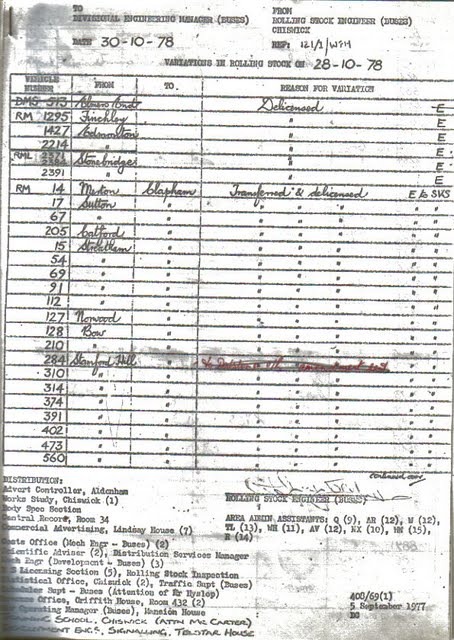 TO
DIVISIONAL ENGINEERING MANAGER (BUSES)
FROM
ROLLING STOCK ENGINEER (BUSES)
CHISWICK
DATE 30-10-78
REF: 121/1/WFH
VARIATIONS IN ROLLING STOCK ON 28-10-78
VEHICLE NUMBER FROM TO. REASON FOR VARIATION
DMS 573 Delicensed E
RM 1295 Finchley " E
1427 Edmonton " E
2214 " " E
RML Stonebridge " E
2391 " " E
RM 14 Merton Clapham Transferred & delicensed E to SUS
17 Sutton " " " " " "
67 " " " " " " "
205 Catford " " " " " "
15 Streatham " " " " " "
54 " " " " " " "
69 " " " " " " "
91 " " " " " " "
112 " " " " " " "
127 Norwood " " " " " "
128 Bow " " " " " "
210 " " " " " " "
284 Stamford Hill " amendment sent " "
310 " " " " " " "
314 " " " " " " "
374 " " " " " " "
391 " " " " " " "
402 " " " " " " "
473 " " " " " " "
560 " " " " " " "
continued over
DISTRIBUTION:
Advert Controller, Aldenham
Works Study, Chiswick (1)
Body Spec Section
Central Record, Room 34
Commercial Advertising, Lindsay House (7)
Costs Office (Mech Engr - Buses) (2)
Scientific Adviser (2), Distribution Services Manager
Mech Engr (Development - Buses) (3)
Licensing Section (5), Rolling Stock Inspection
Statistical Office, Chiswick (2), Traffic Supt (Buses)
Schedules Supt - Buses (Attention of Mr Hyslop)
Office, Griffith House, Room 432 (2)
Operating Manager (Buses), Mansion House
SCHOOL, CHISWICK (ATTN MR CARTER)
ENGR, SIGNALLING, TELSTAR HOUSE
ROLLING STOCK ENGINEER (BUSES)
AREA ADMIN ASSISTANTS: Q (9), AR (12), W (12),
TL (13), WH (11), AV (12), NX (10), HN (15),
R (14)
400/69(1)
5 September 1977